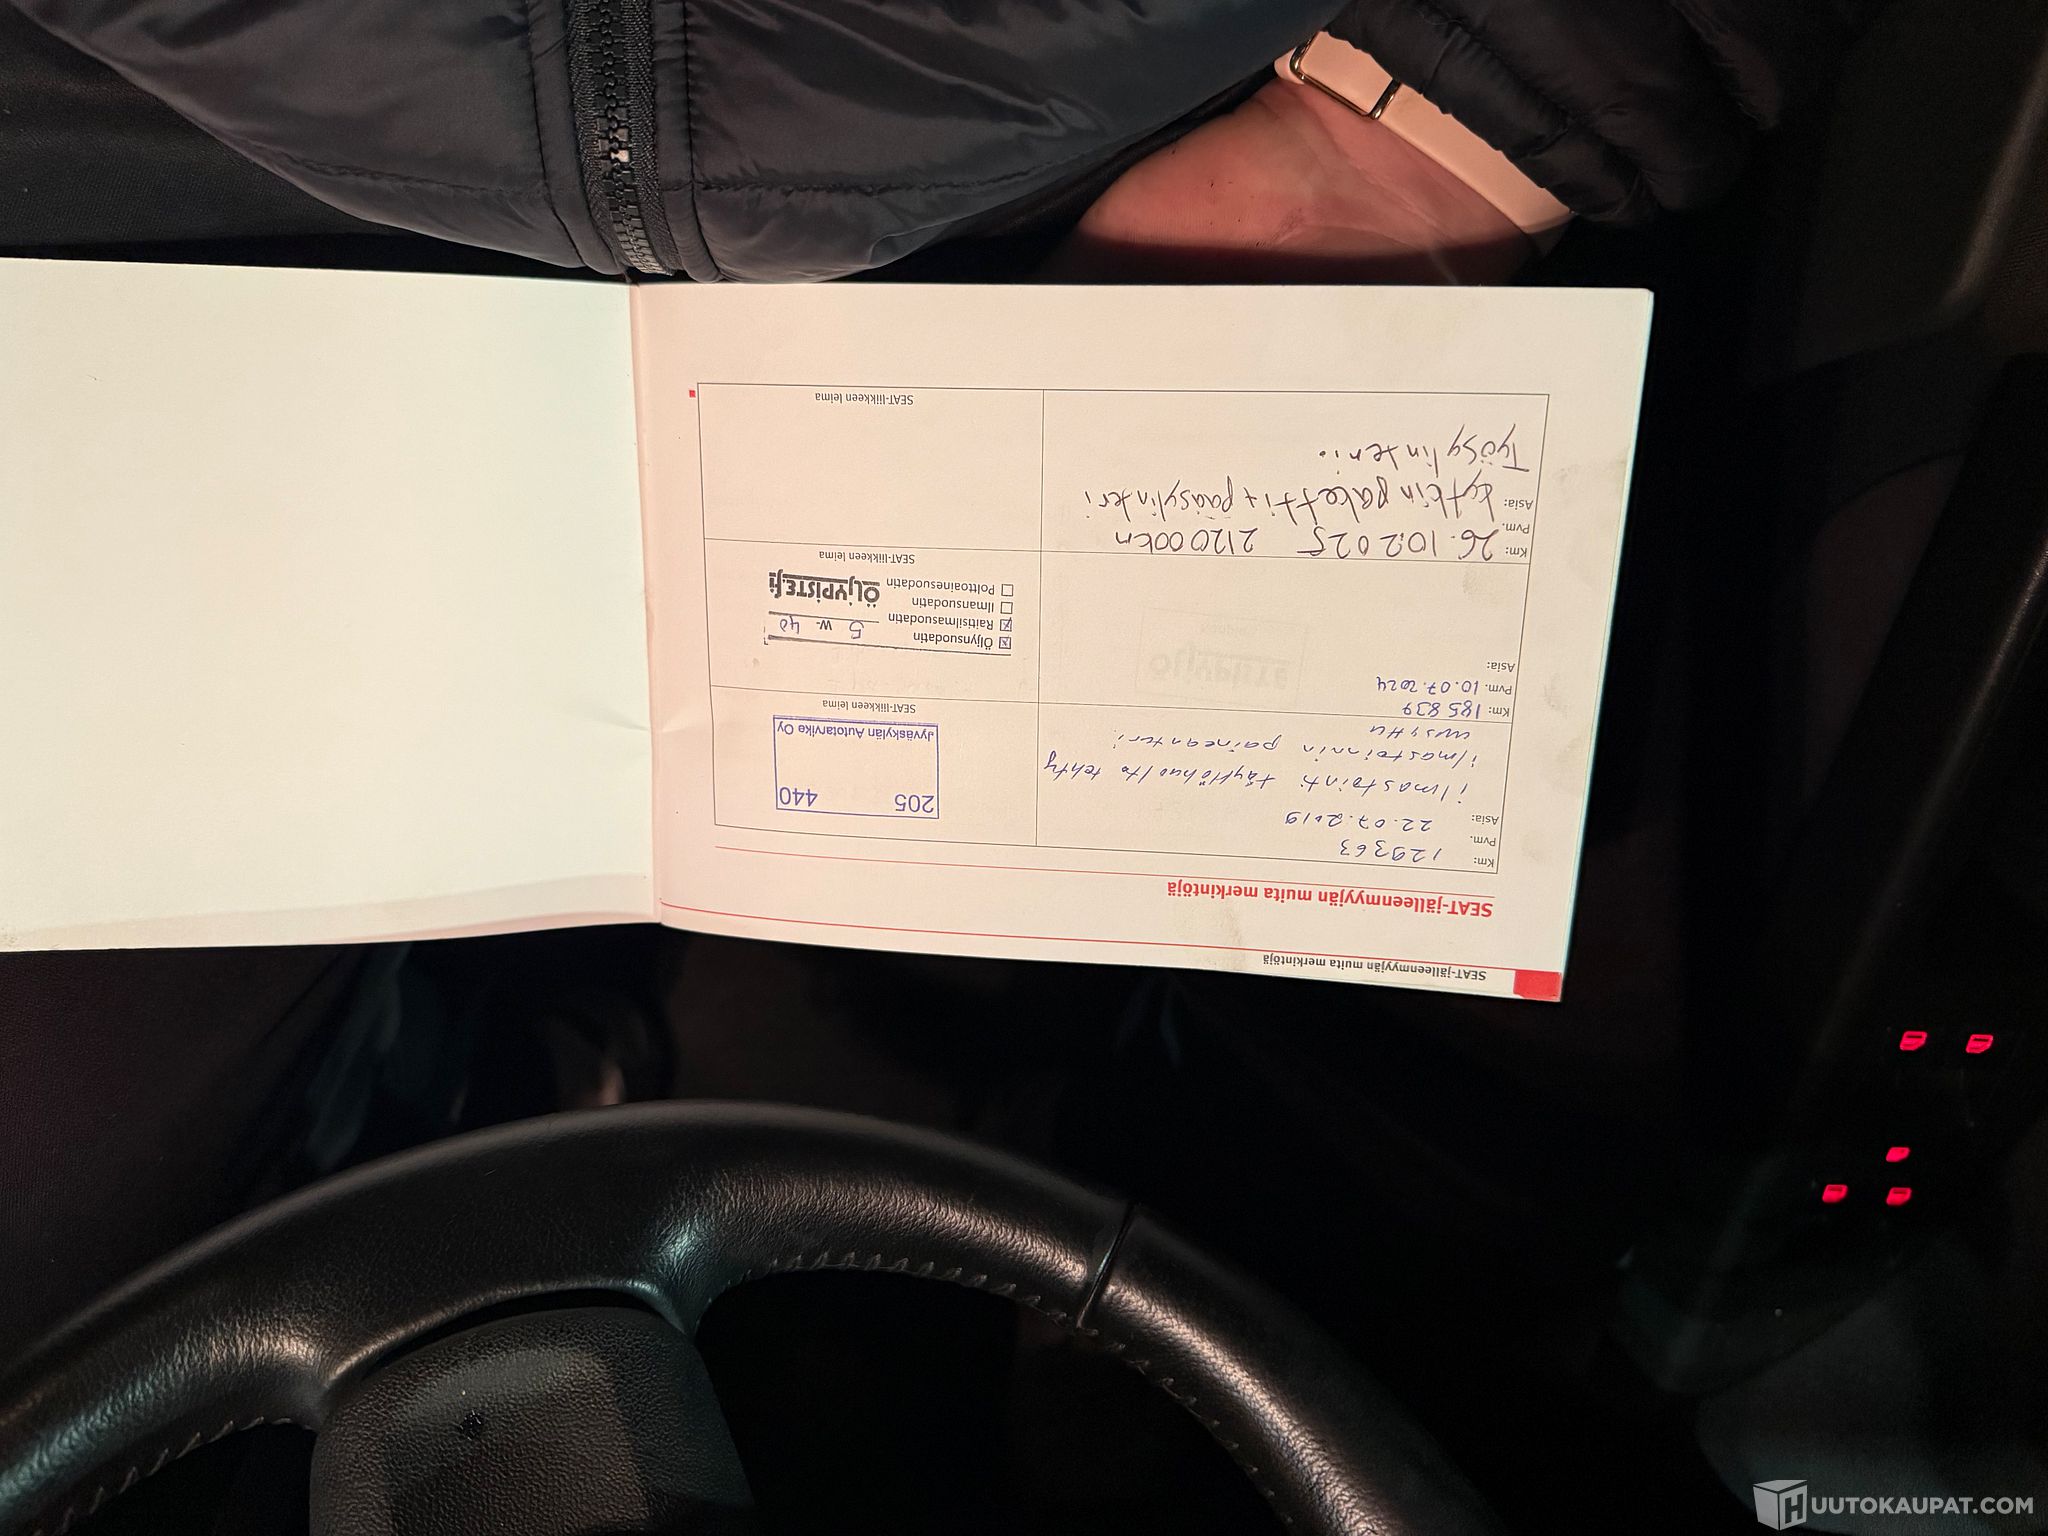 SEAT-jälleenmyyjän muita merkintöjä
SEAT-jälleenmyyjän muita merkintöjä
Km: 129363
Pvm. 22.07.2019
Asia: ilmastointi täyttöhuolto tehty
ilmastoinnin paineanturi
uusittu
205 440
Jyväskylän Autotarvike Oy
SEAT-liikkeen leima
Km: 185839
Pvm. 10.07.2024
Asia:
Öljynsuodatin
Raitisilmasuodatin
Ilmansuodatin
Polttoainesuodatin
5 W- 40
ÖLJYPISTE.fi
SEAT-liikkeen leima
Km: 26.10.2025 212000km
Pvm.
Asia: kytkin paketti + pääsylinteri
Työsylinteri.
SEAT-liikkeen leima
HUUTOKAUPAT.COM